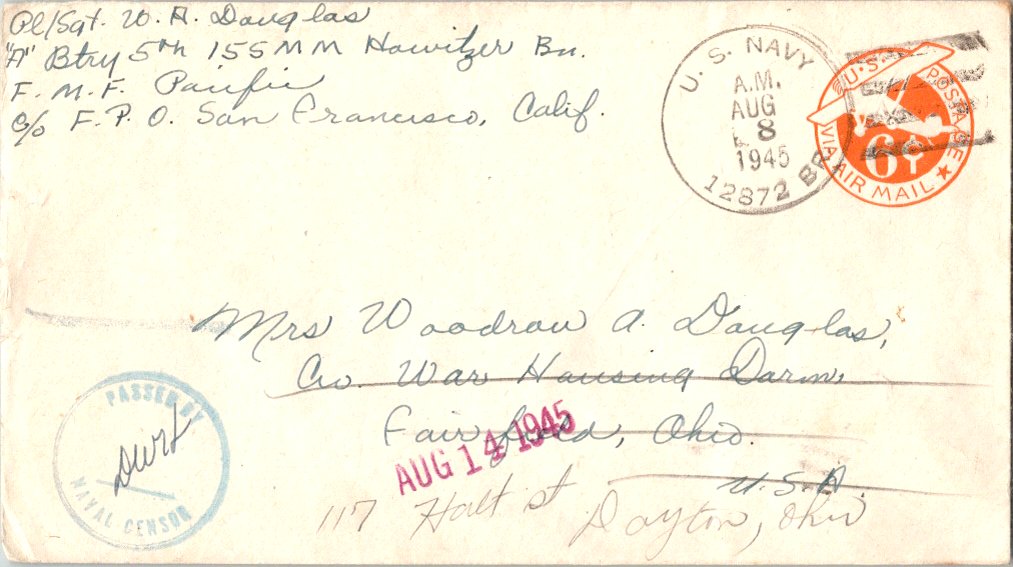 Pl/Sgt. W. A. Douglas
"A" Btry 5th 155 MM Howitzer Bn.
F. M. F. Pacific
c/o F. P. O. San Francisco, Calif.
U. S. NAVY
A.M.
AUG
8
1945
12872 BR.
U.S. POSTAGE
6¢
VIA AIR MAIL
Mrs Woodrow A. Douglas,
Co. War Housing Dorm,
Fairfield, Ohio.
U. S. A.
AUG 14 1945
117 Halt st Dayton, Ohio
PASSED BY
NAVAL CENSOR